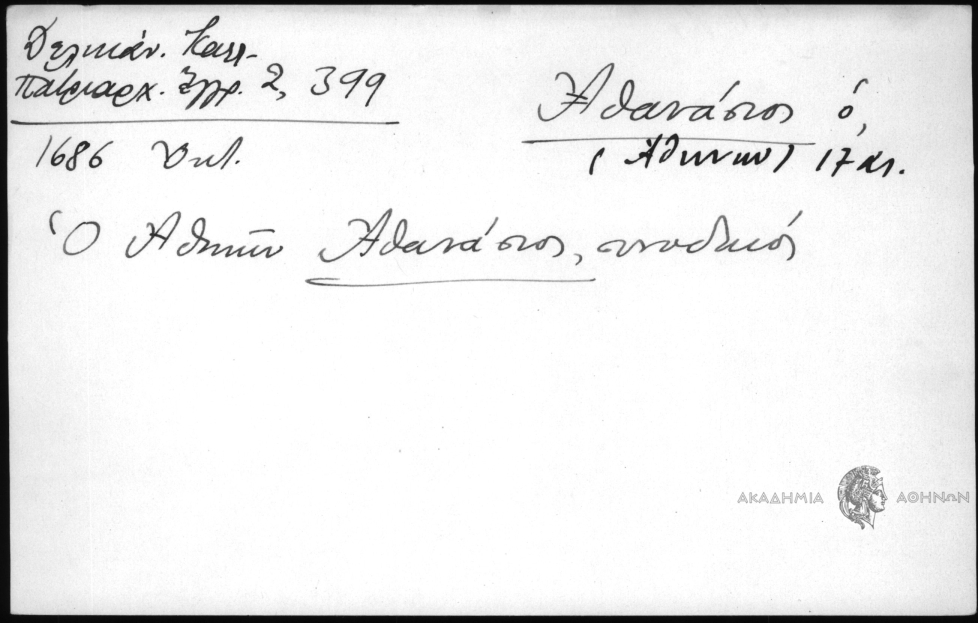 Δελικάν. Κων.
Πατριαρχ. Ἔγγρ. 2, 399
1686 Ὀκτ.
Ἀθανάσιος ὁ,
(Ἀθηνῶν) 17 αι.
Ὁ Ἀθηνῶν Ἀθανάσιος, συνοδικός
ΑΚΑΔΗΜΙΑ ΑΘΗΝΩΝ